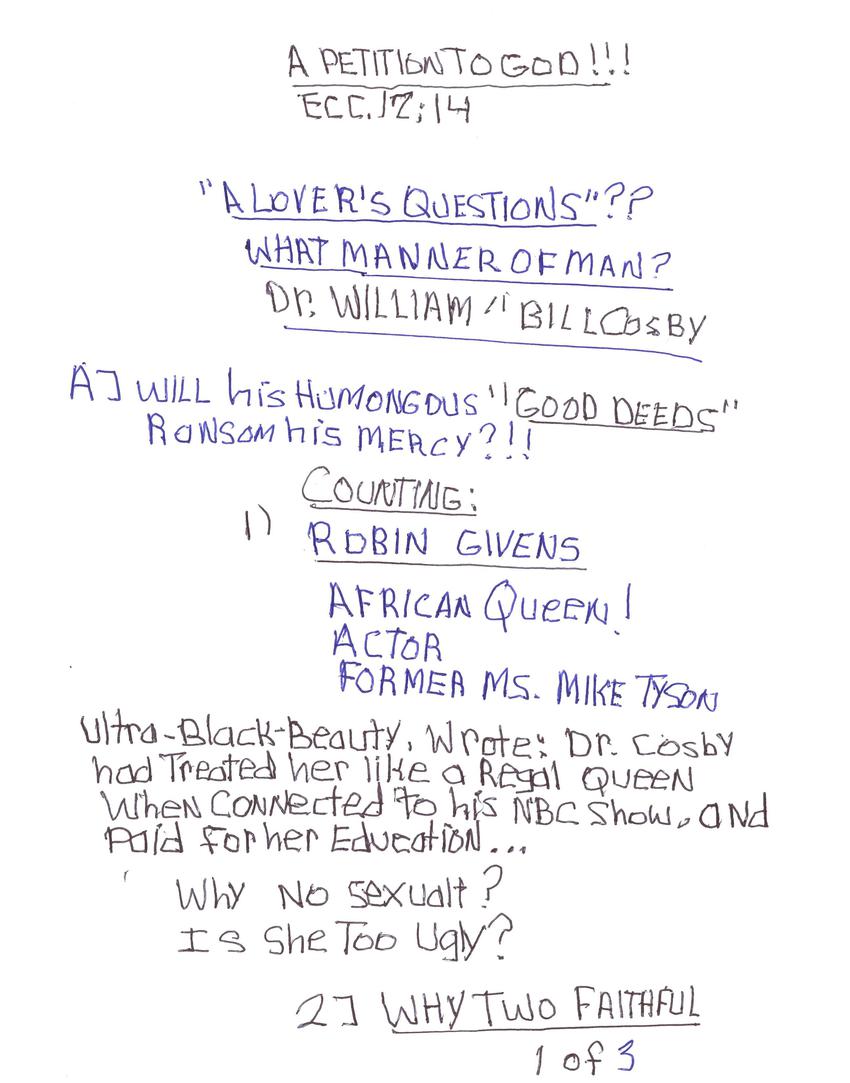 A PETITION TO GOD!!!
ECC. 12; 14
"A LOVER'S QUESTIONS"??
WHAT MANNER OF MAN?
Dr. WILLIAM " BILL COSBY
A] WILL his HUMONGOUS "GOOD DEEDS"
RANSOM his MERCY?!!
COUNTING:
1)
ROBIN GIVENS
AFRICAN QUEEN!
ACTOR
FORMER MS. MIKE TYSON
Ultra-Black-Beauty, Wrote: Dr. Cosby
had Treated her like a Regal QUEEN
When CONNected to his NBC Show, aNd
Paid for her Education...
Why No Sexualt?
Is She Too Ugly?
2] WHY TWO FAITHFUL
1 of 3